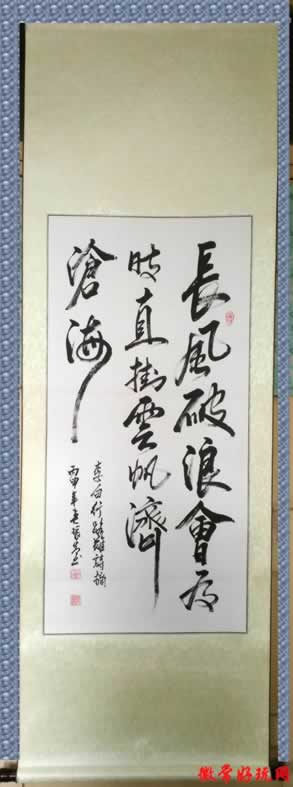 長風破浪會有
時直掛雲帆濟
滄海
李白行路難詩摘
丙申年
徽常好玩网